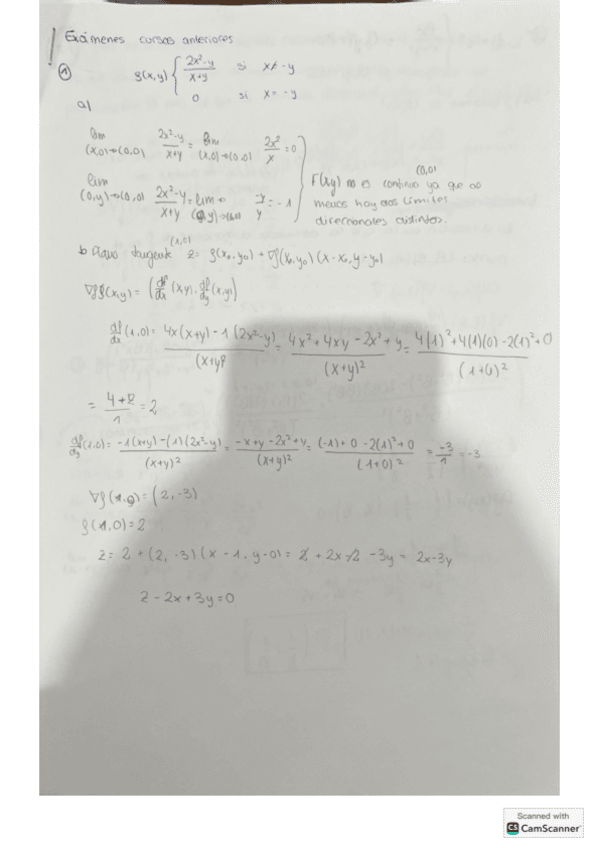 Exámenes cursos anteriores
① g(x,y) { 2x²-y / x+y si x≠-y
0 si x=-y
a)
lim (x,0)→(0,0) 2x²-y / x+y = lim (x,0)→(0,0) 2x² / x = 0
lim (0,y)→(0,0) 2x²-y / x+y = lim (0,y)→(0,0) -y / y = -1
F(x,y) no es continua ya que ao (0,0)
menos hay dos límites
direccionales distintos.
b Plano tangente (1,0) z= g(x₀,y₀) + ∇g(x₀,y₀)(x-x₀, y-y₀)
∇g(x,y) = (df/dx (x,y), df/dy (x,y))
df/dx (1,0)= 4x(x+y) - 1(2x²-y) / (x+y)² = 4x²+4xy-2x²+y / (x+y)² = 4(1)²+4(1)(0)-2(1)²+0 / (1+0)²
= 4-2 / 1 = 2
df/dy (1,0)= -1(x+y)-(1)(2x²-y) / (x+y)² = -x+y-2x²+y / (x+y)² = (-1)+0-2(1)²+0 / (1+0)² = -3 / 1 = -3
∇g(1,0)= (2,-3)
g(1,0)=2
z= 2+(2,-3)(x-1, y-0)= 2+2x-2-3y = 2x-3y
z-2x+3y=0
Scanned with
CS CamScanner